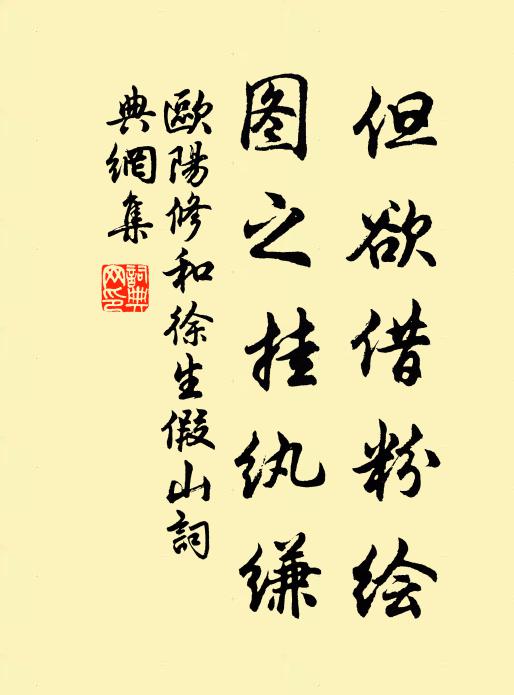 但欲借粉绘
图之挂纨缣
歐陽修和徐生假山詞
典網集
詞典
网印